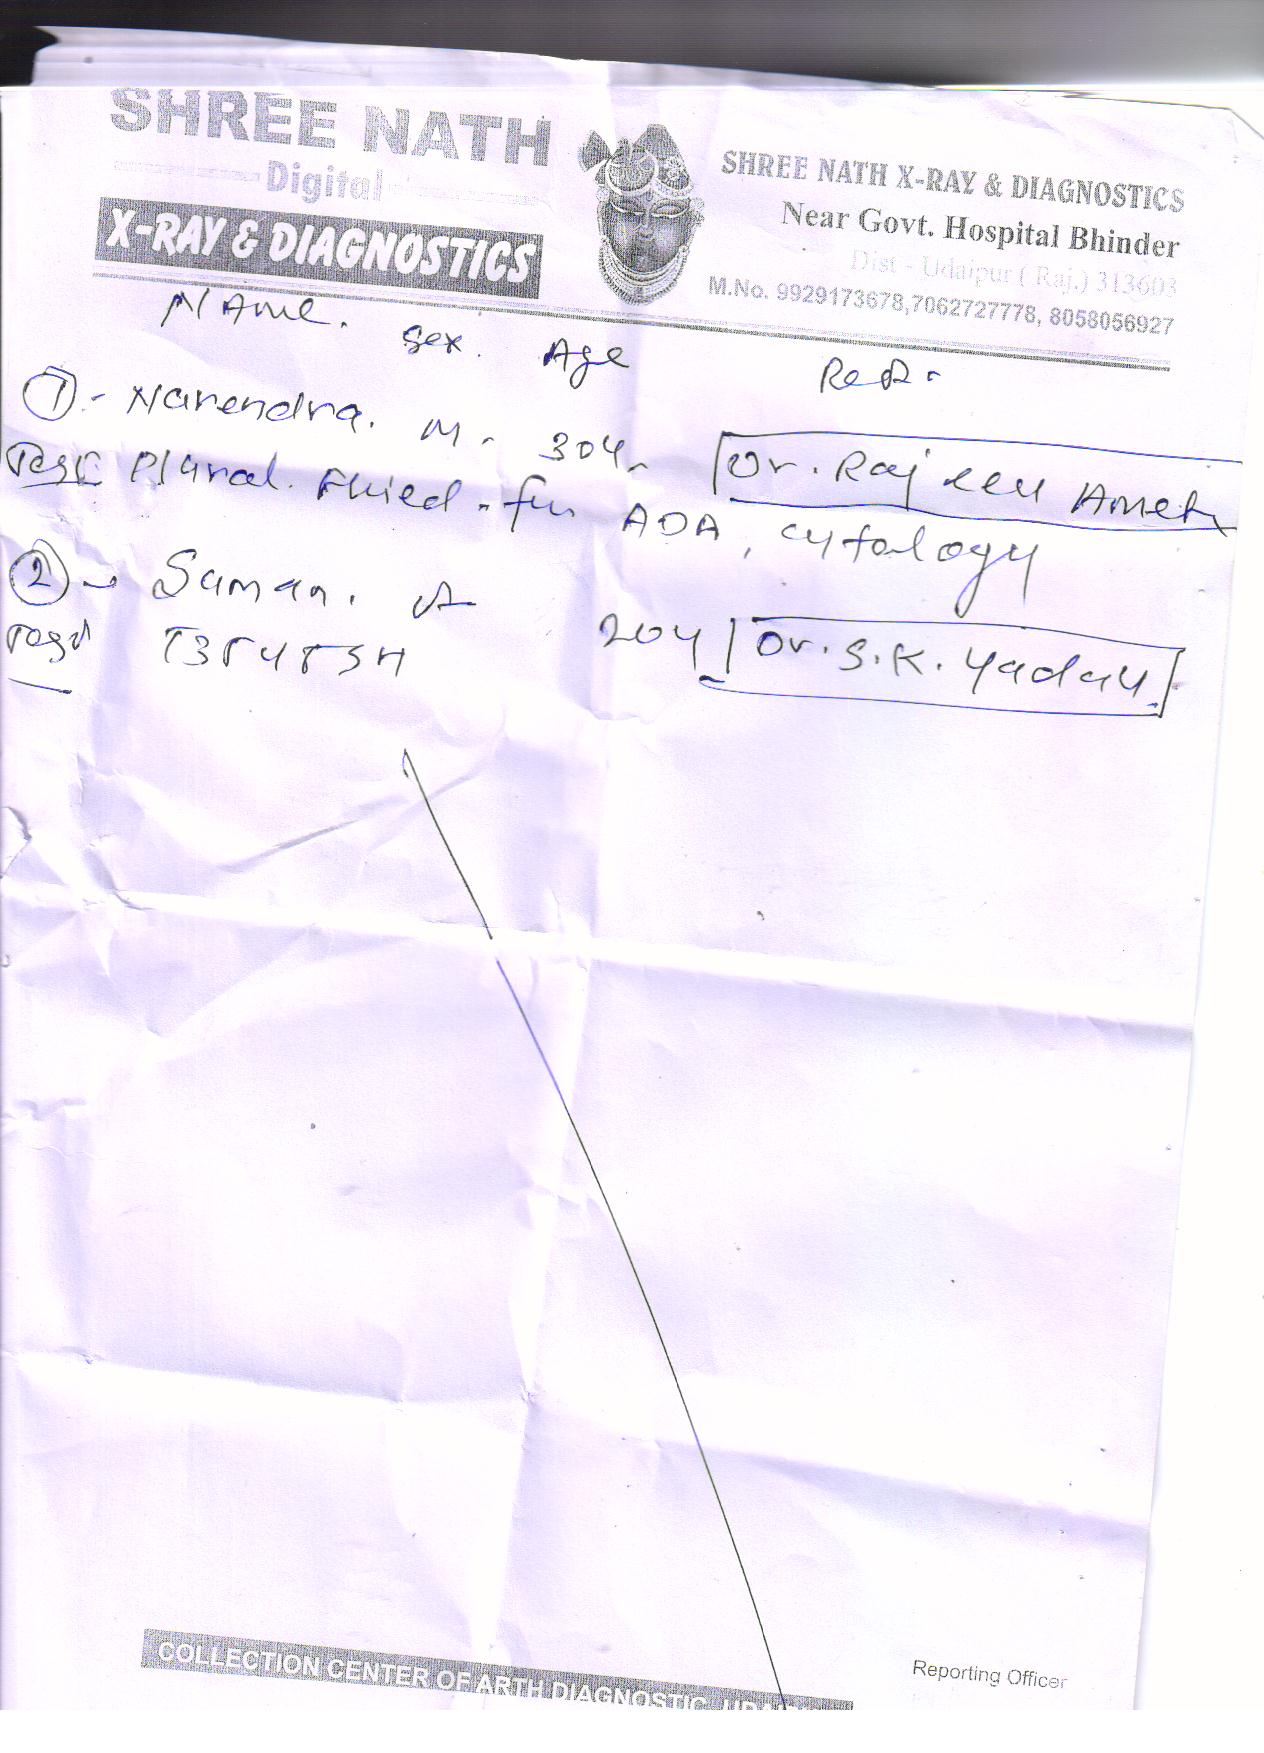 SHREE NATH
Digital
X-RAY & DIAGNOSTICS
SHREE NATH X-RAY & DIAGNOSTICS
Near Govt. Hospital Bhinder
Dist - Udaipur ( Raj.) 313603
M.No. 9929173678,7062727778, 8058056927
Name. Sex. Age Ref.
1 - Narendra. M - 30Y Dr. Rajeev Ameta
Test Plural. Fluied - for ADA, cytology
2 - Suman. 20Y Dr. S.K. Yadav
Test T3T4TSH
Reporting Officer
COLLECTION CENTER OF ARTH DIAGNOSTIC